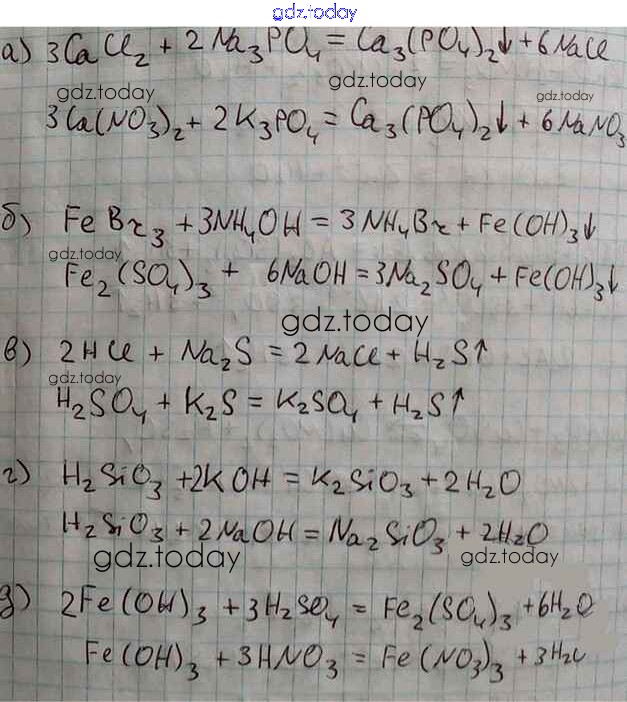 gdz.today
а) 3CaCl₂ + 2Na₃PO₄ = Ca₃(PO₄)₂↓ + 6NaCl
gdz.today gdz.today gdz.today
3Ca(NO₃)₂ + 2K₃PO₄ = Ca₃(PO₄)₂↓ + 6NaNO₃
б) FeBr₃ + 3NH₄OH = 3NH₄Br + Fe(OH)₃↓
gdz.today
Fe₂(SO₄)₃ + 6NaOH = 3Na₂SO₄ + Fe(OH)₃↓
gdz.today
в) 2HCl + Na₂S = 2NaCl + H₂S↑
gdz.today
H₂SO₄ + K₂S = K₂SO₄ + H₂S↑
г) H₂SiO₃ + 2KOH = K₂SiO₃ + 2H₂O
H₂SiO₃ + 2NaOH = Na₂SiO₃ + 2H₂O
gdz.today gdz.today
д) 2Fe(OH)₃ + 3H₂SO₄ = Fe₂(SO₄)₃ + 6H₂O
Fe(OH)₃ + 3HNO₃ = Fe(NO₃)₃ + 3H₂O